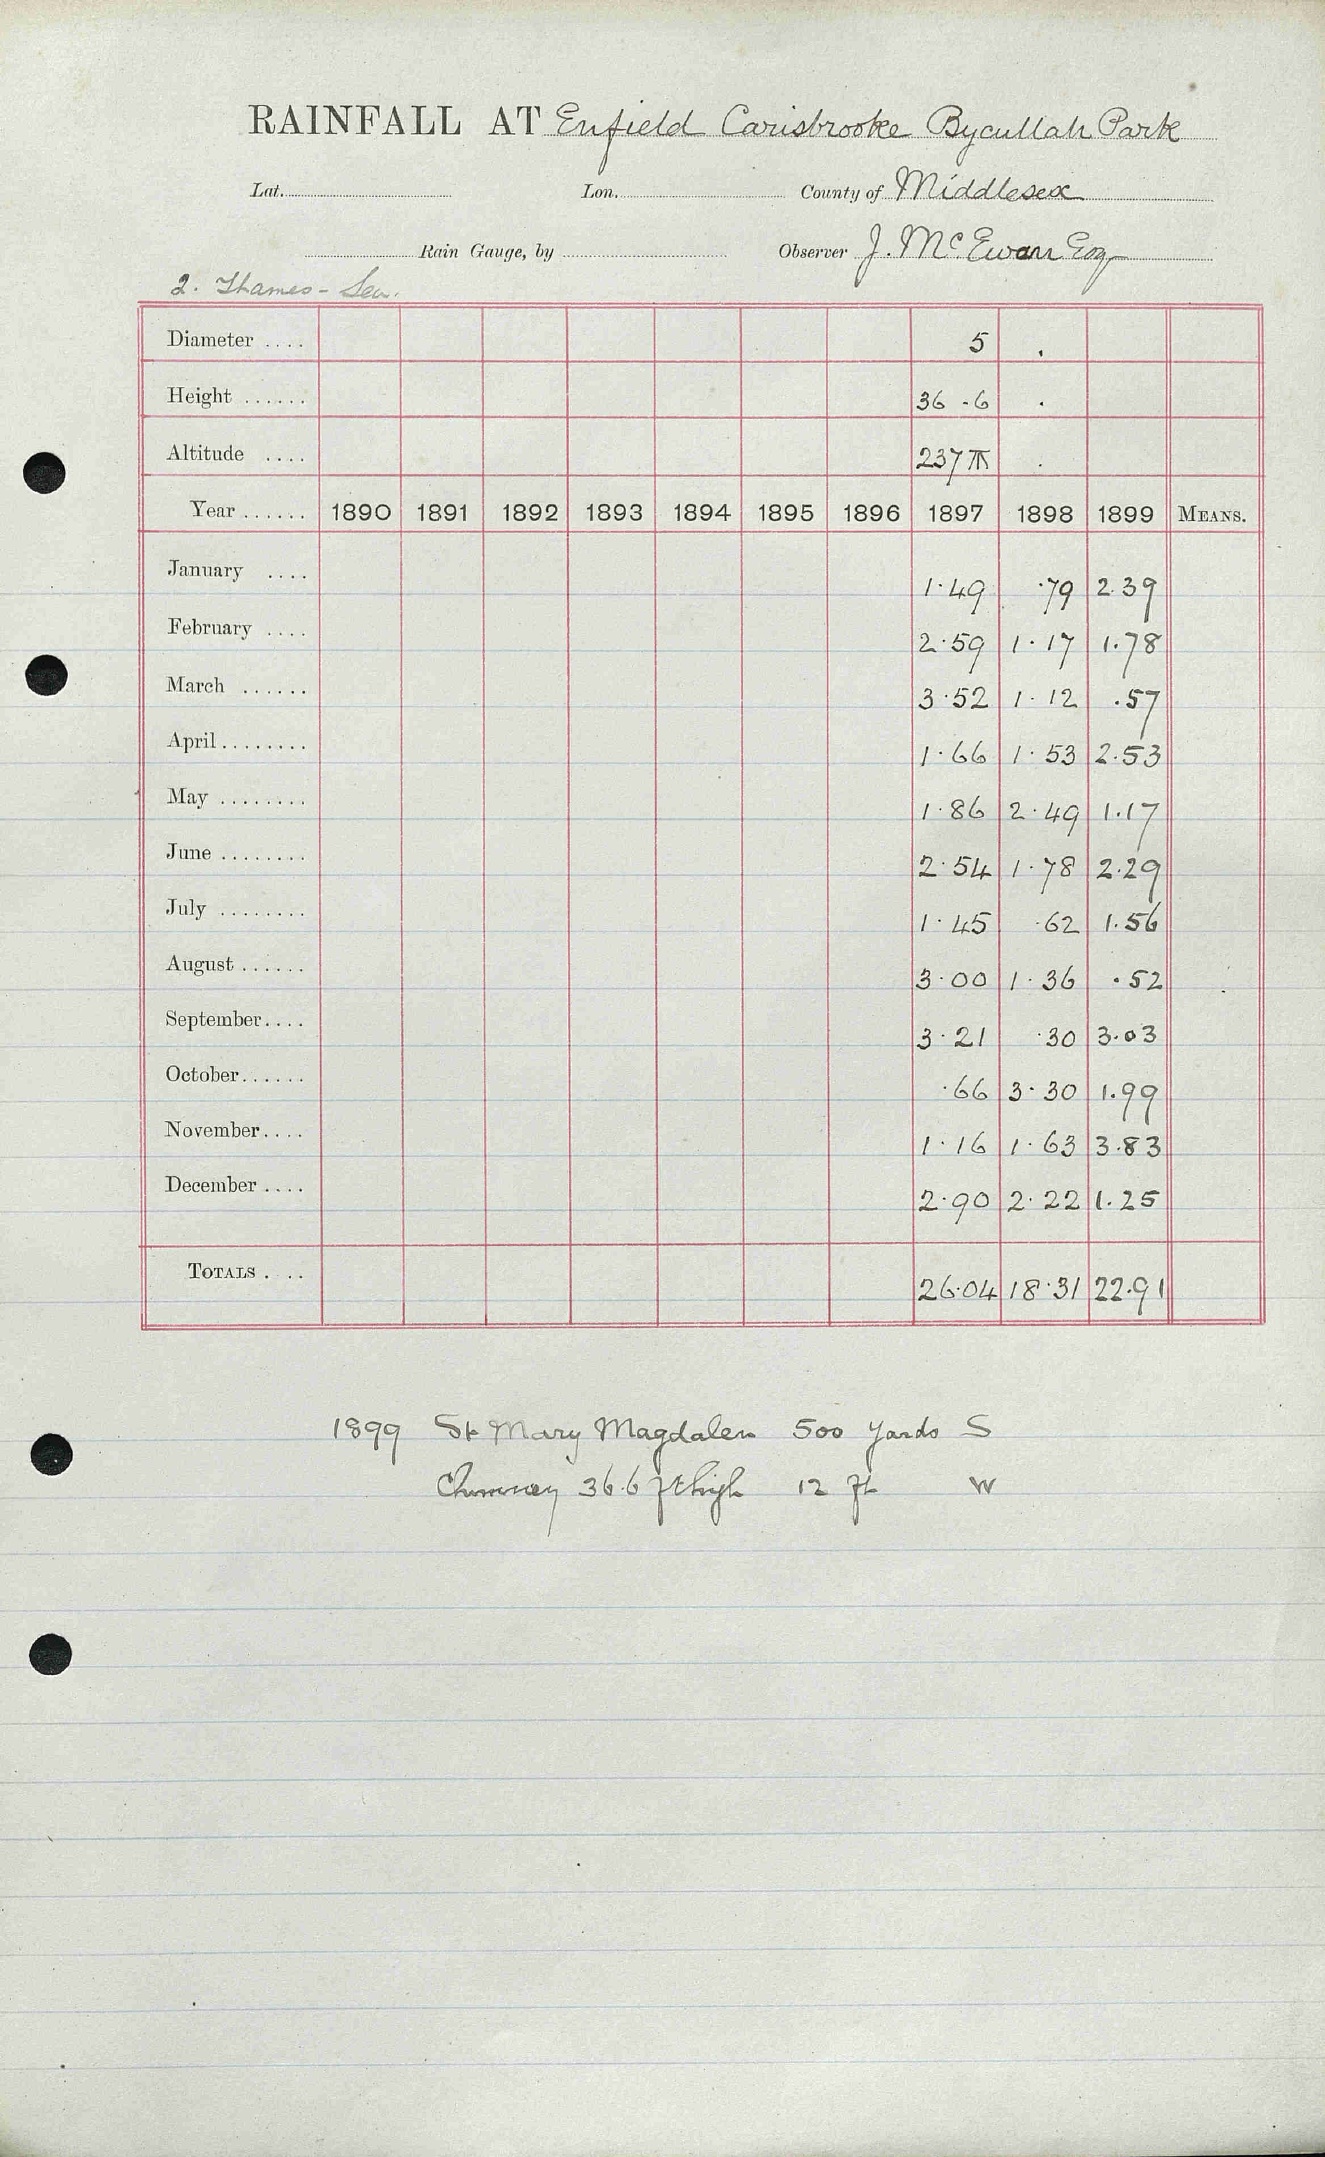 RAINFALL AT Enfield Carisbrooke Bycullah Park
Lat. Lon. County of Middlesex
Rain Gauge, by Observer J. McEwan Esq
2. Thames - Lea.
Diameter .... 5 .
Height ...... 36 .6 .
Altitude .... 237 .
Year ...... 1890 1891 1892 1893 1894 1895 1896 1897 1898 1899 MEANS.
January .... 1.49 .79 2.39
February .... 2.59 1.17 1.78
March ...... 3.52 1.12 .57
April ........ 1.66 1.53 2.53
May ........ 1.86 2.49 1.17
June ........ 2.54 1.78 2.29
July ........ 1.45 .62 1.56
August ...... 3.00 1.36 .52
September .... 3.21 .30 3.03
October ...... .66 3.30 1.99
November .... 1.16 1.63 3.83
December .... 2.90 2.22 1.25
TOTALS .... 26.04 18.31 22.91
1899 St Mary Magdalen 500 yards S
Chimney 36.6 ft high 12 ft W